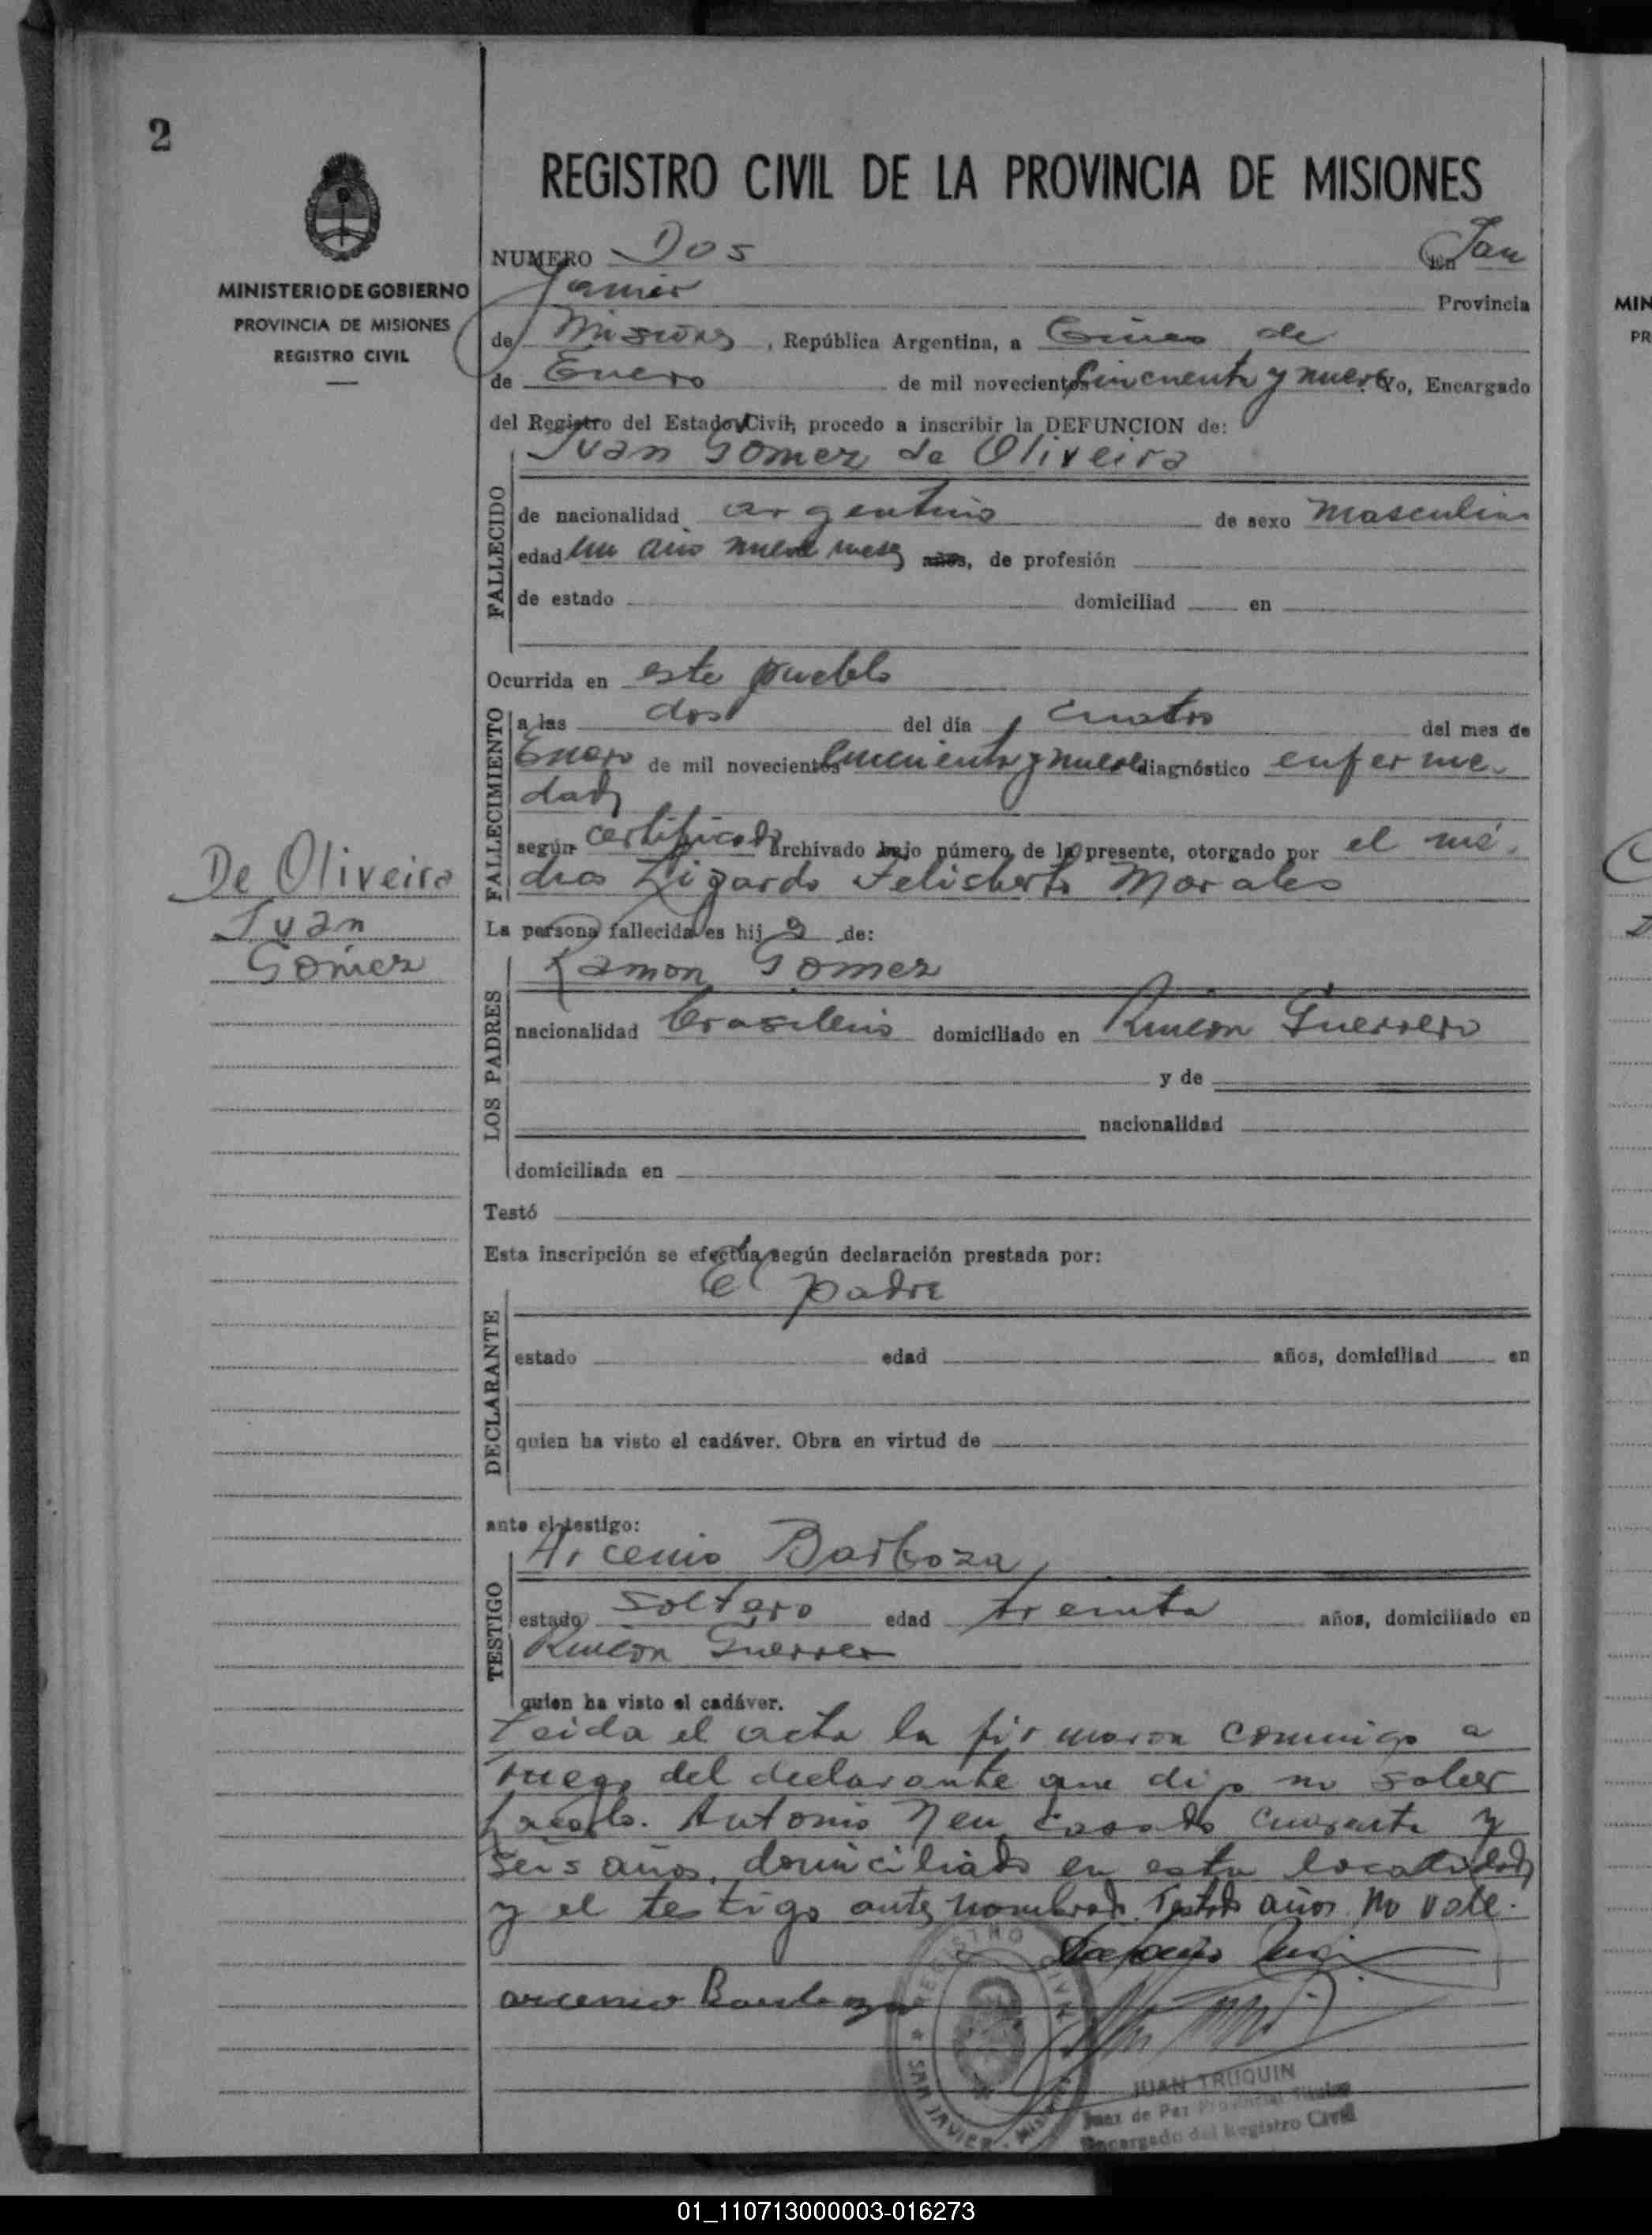 2
MINISTERIO DE GOBIERNO
PROVINCIA DE MISIONES
REGISTRO CIVIL
De Oliveira
Juan
Gomez
REGISTRO CIVIL DE LA PROVINCIA DE MISIONES
NUMERO Dos En San
Javier Provincia
de Misiones, República Argentina, a Cinco de
de Enero de mil novecientos cincuenta y nueve Yo, Encargado
del Registro del Estado Civil, procedo a inscribir la DEFUNCION de:
Juan Gomez de Oliveira
FALLECIDO
de nacionalidad argentino de sexo masculino
edad un año nueve meses años, de profesión
de estado domiciliad en
Ocurrida en este pueblo
FALLECIMIENTO
a las dos del día cuatro del mes de
Enero de mil novecientos cincuenta y nueve diagnóstico enferme-
dad
según certificado archivado bajo número de la presente, otorgado por el mé-
dico Lizardo Felisberto Morales
La persona fallecida es hijo de:
LOS PADRES
Ramon Gomez
nacionalidad brasileño domiciliado en Rincon Guerrero
y de
nacionalidad
domiciliada en
Testó
Esta inscripción se efectúa según declaración prestada por:
El padre
DECLARANTE
estado edad años, domiciliad en
quien ha visto el cadáver. Obra en virtud de
ante el testigo:
Arcenio Barboza
TESTIGO
estado soltero edad treinta años, domiciliado en
Rincon Guerrero
quien ha visto el cadáver.
Leida el acta la firmaron conmigo a
ruego del declarante que dijo no saber
hacerlo. Antonio casado cuarenta y
seis años, domiciliado en esta localidad
y el testigo antes nombrado. Testado años no vale.
arcenio Barboza
REGISTRO CIVIL
SAN JAVIER - MISIONES
JUAN TRUQUIN
Juez de Paz Provincial Titular
Encargado del Registro Civil
MIN
PR
01_110713000003-016273